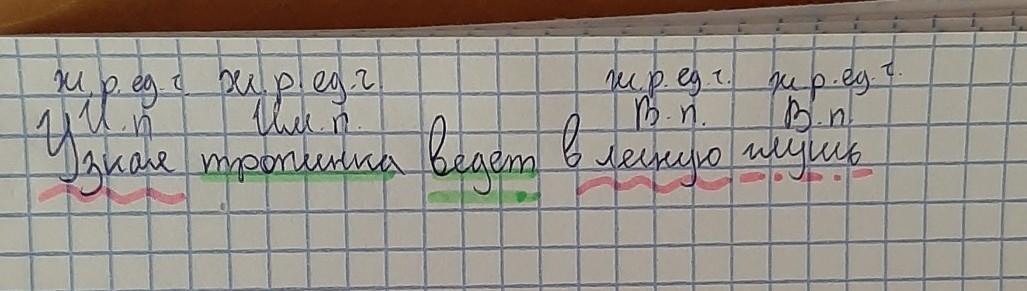 ж.р.ед.ч. ж.р.ед.ч. ж.р.ед.ч. ж.р.ед.ч.
И.п. Им.п. В.п. В.п.
Узкая тропинка ведет в лесную глушь